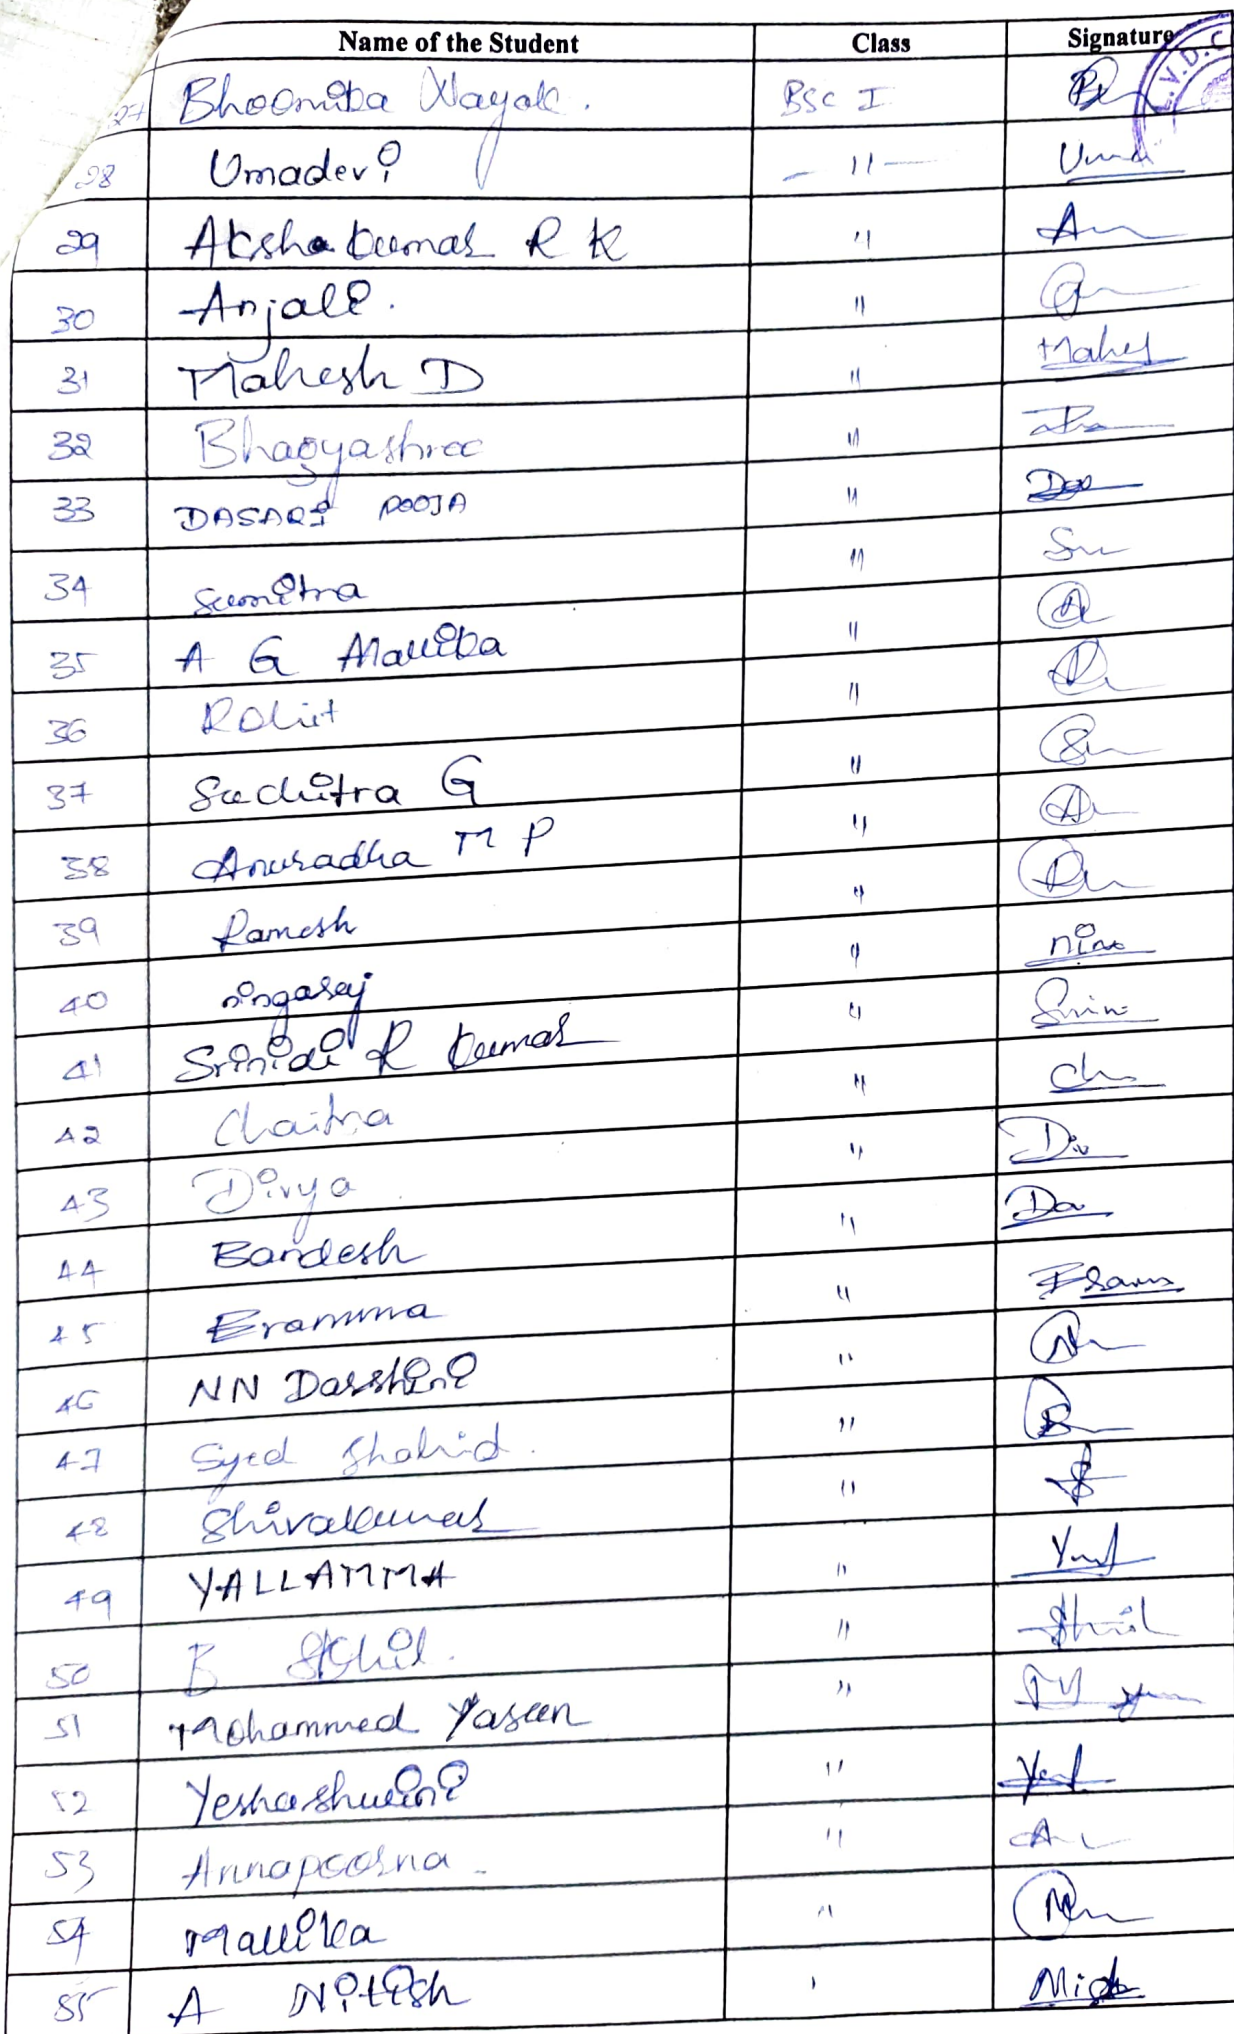 Name of the Student Class Signature
27 Bhoomika Nayak. BSC I
28 Umadevi — 11 — Uma
29 Akshakumar R K "
30 Anjali. "
31 Mahesh D " Mahes
32 Bhagyashree "
33 DASARi POOJA "
34 Sumitra "
35 A G Mallika "
36 Rohit "
37 Suchitra G "
38 Anuradha M P "
39 Ramesh "
40 ningaraj "
41 Srinidi R kumar "
42 Chaitra "
43 Divya "
44 Bandesh "
45 Eramma "
46 NN Darshini "
47 Syed Shahid. "
48 Shivakumar "
49 YALLAMMA "
50 B "
51 Mohammed Yaseen "
52 Yeshashwini "
53 Annapoorna "
54 Mallika "
55 A Nitish